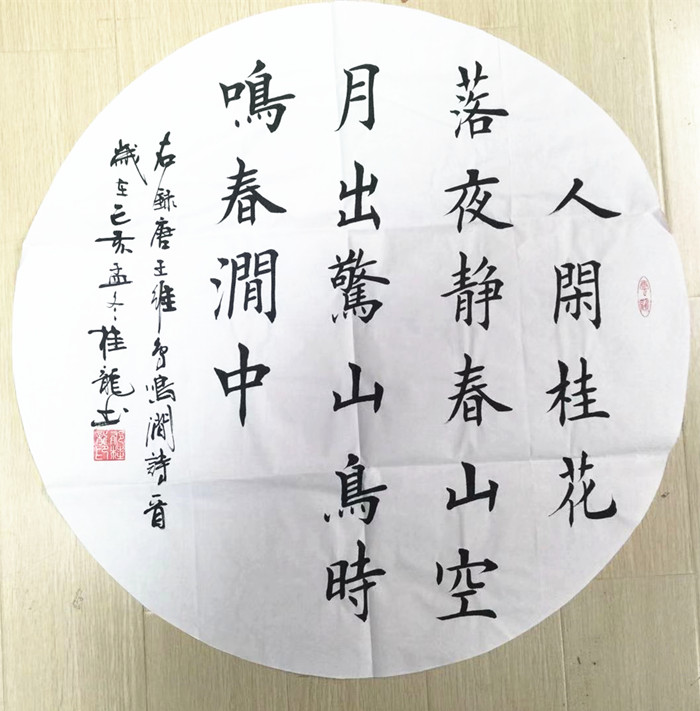 人閑桂花
落夜静春山空
月出驚山鳥時
鳴春澗中
右録唐王維鳥鳴澗詩一首
歲在己亥孟冬桂龍书